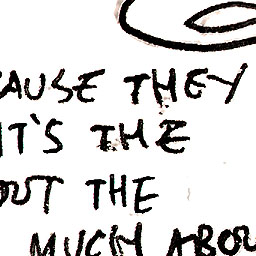 CAUSE THEY
IT'S THE
OUT THE
MUCH ABOU